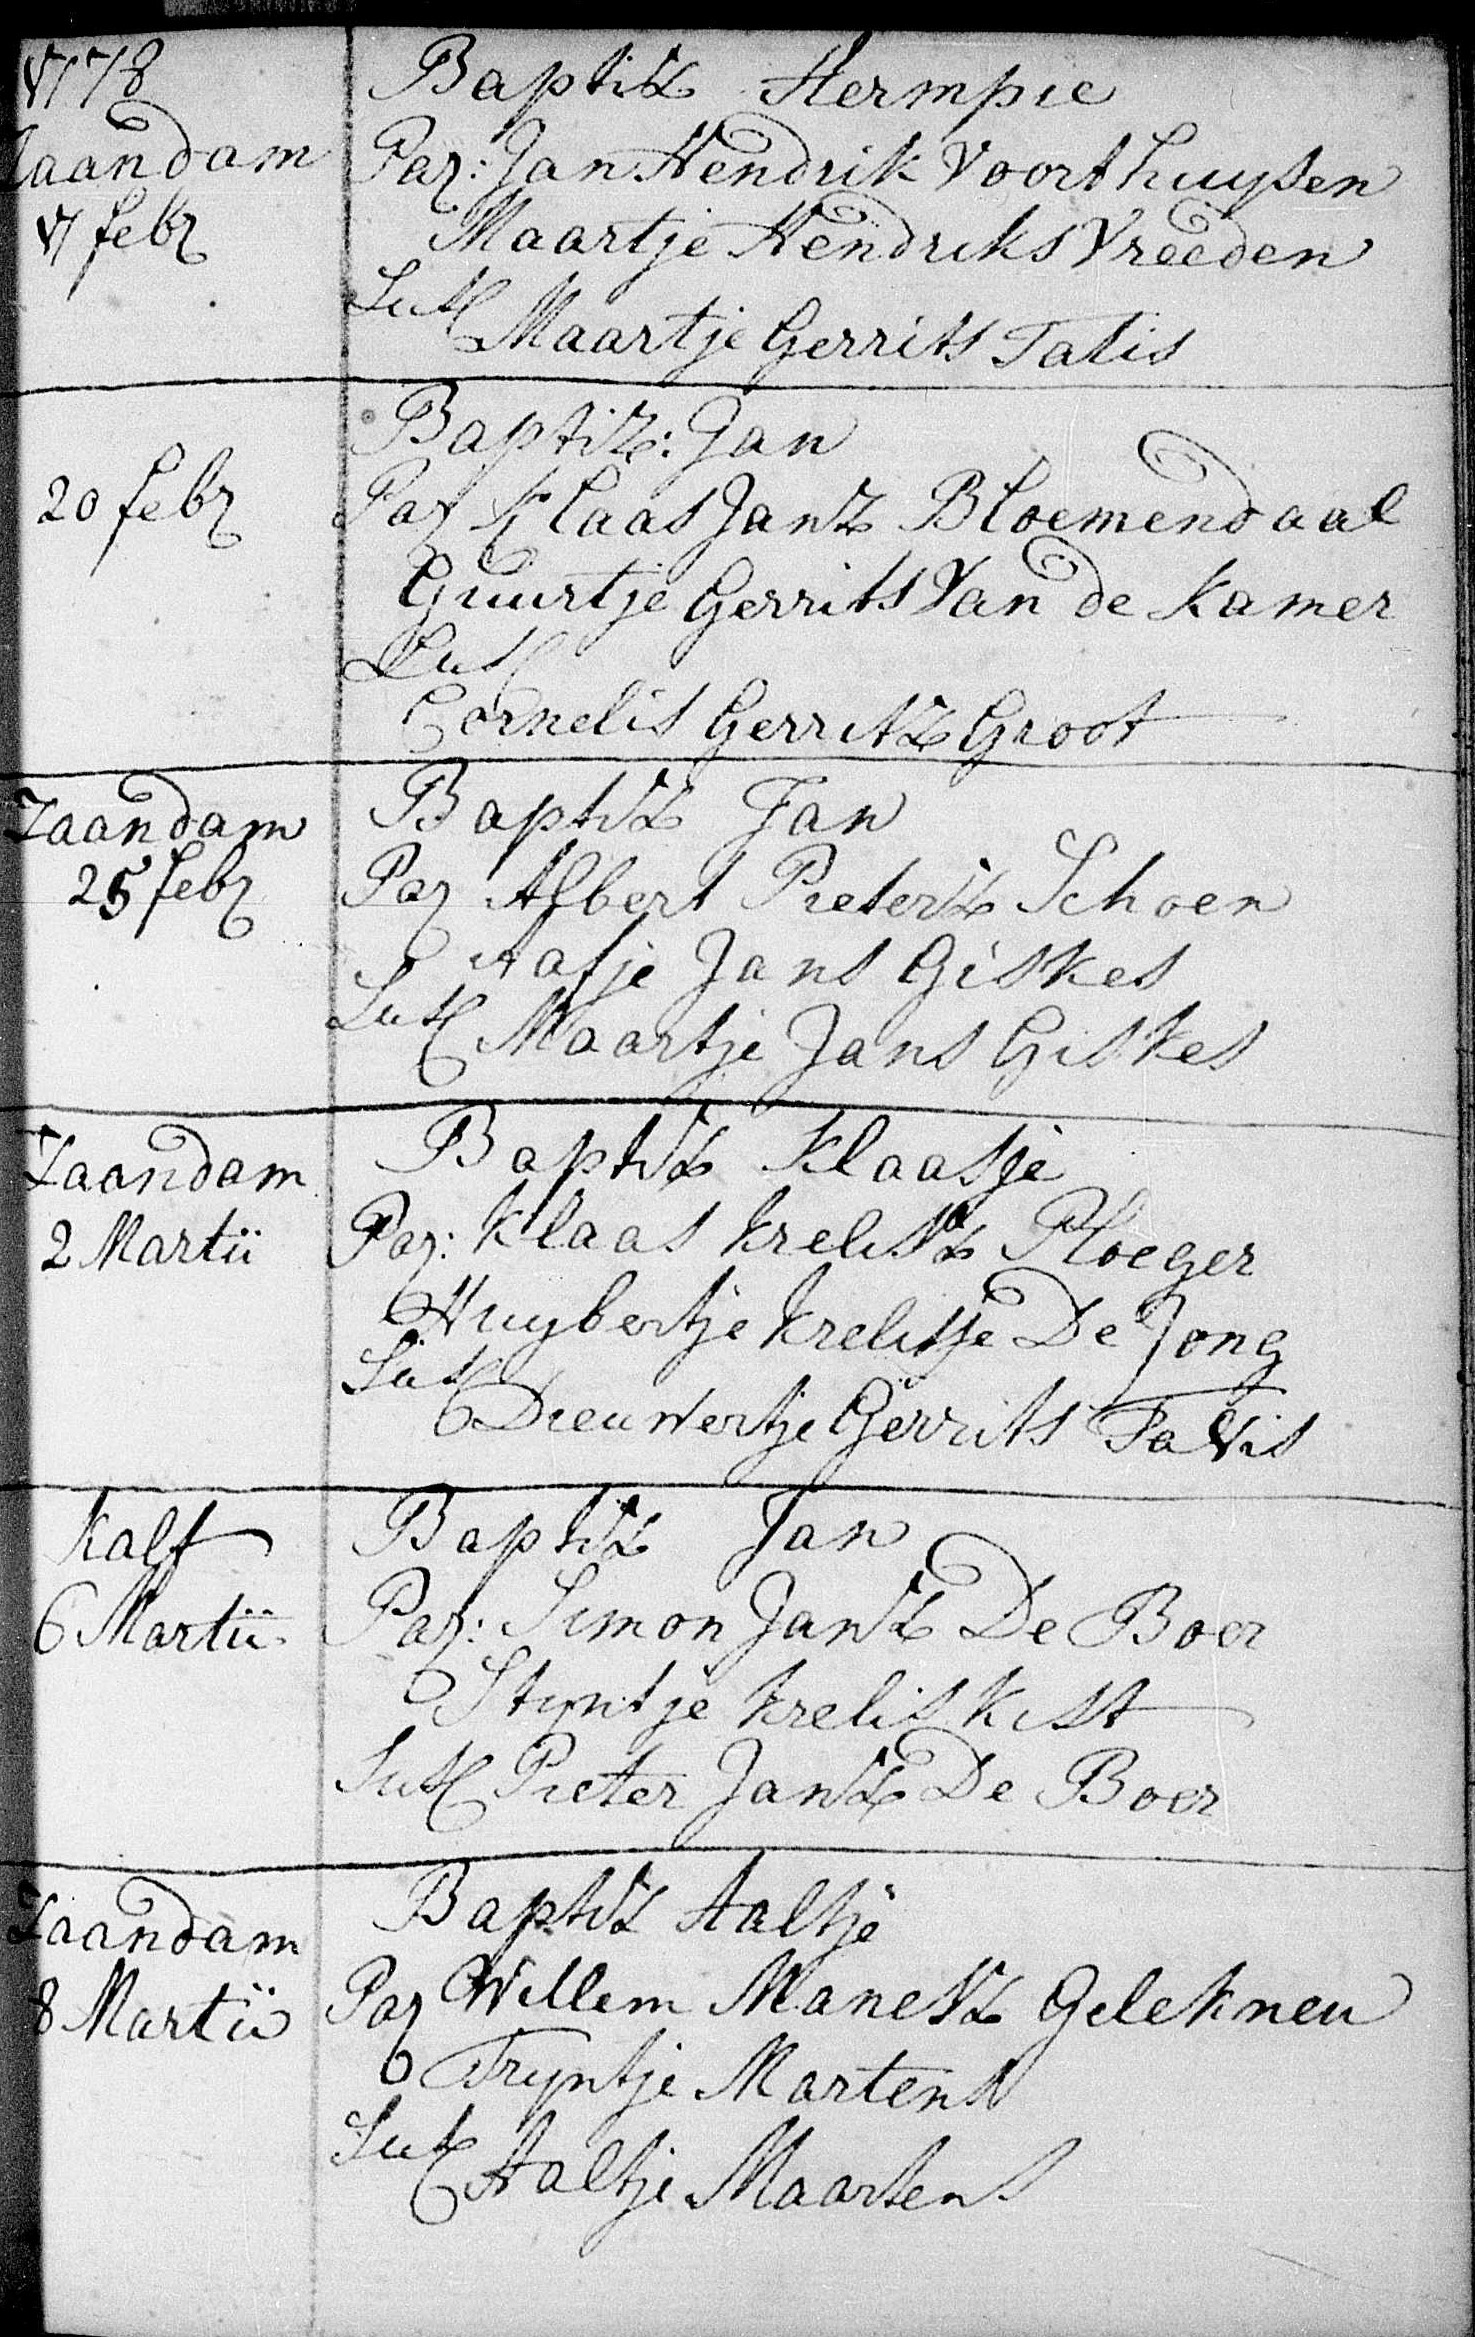 1778
Zaandam
17 febr
Baptiz Hermpie
Par: Jan Hendrik Voorthuysen
Maartje Hendriks Vreeden
Sus
Maartje Gerrits Talis
20 febr
Baptiz: Jan
Par Klaas Janz Bloemendaal
Guurtje Gerrits Van de Kamer
Sus
Cornelis Gerritz Groot
Zaandam
25 febr
Baptiz Jan
Par Albert Pietersz Schoen
Aafje Jans Giskes
Sus Maartje Jans Giskes
Zaandam
2 Martii
Baptiz Klaasje
Par: Klaas Krelisz Ploeger
Huybertje Krelisse De Jong
Sus
Dieuwertje Gerrits Talis
Kalf
6 Martii
Baptiz Jan
Par: Simon Jansz De Boer
Stijntje Krelis Kist
Sus Pieter Jansz De Boer
Zaandam
8 Martii
Baptiz Aaltje
Par Willem Manesz Gelekneu
Tryntje Martens
Sus Aaltje Maartens